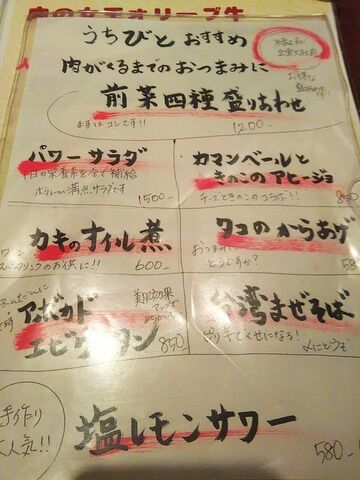 うちびと おすすめ
肉がくるまでのおつまみに
前菜四種盛りあわせ
まずはコレです!!
1200-
パワーサラダ
1日の栄養素を全て補給
ボリューム満点サラダです
1500-
カマンベールと
きのこのアヒージョ
チーズときのこのコラボ!!
カキのオイル煮
スパークリングのお供に!!
600-
タコのからあげ
おつまみに
どうですか?
アボカド
美肌効果
850
台湾まぜそば
ピリ辛でくせになる!
〆にどうぞ
手作り
人気!!
塩レモンサワー
580-